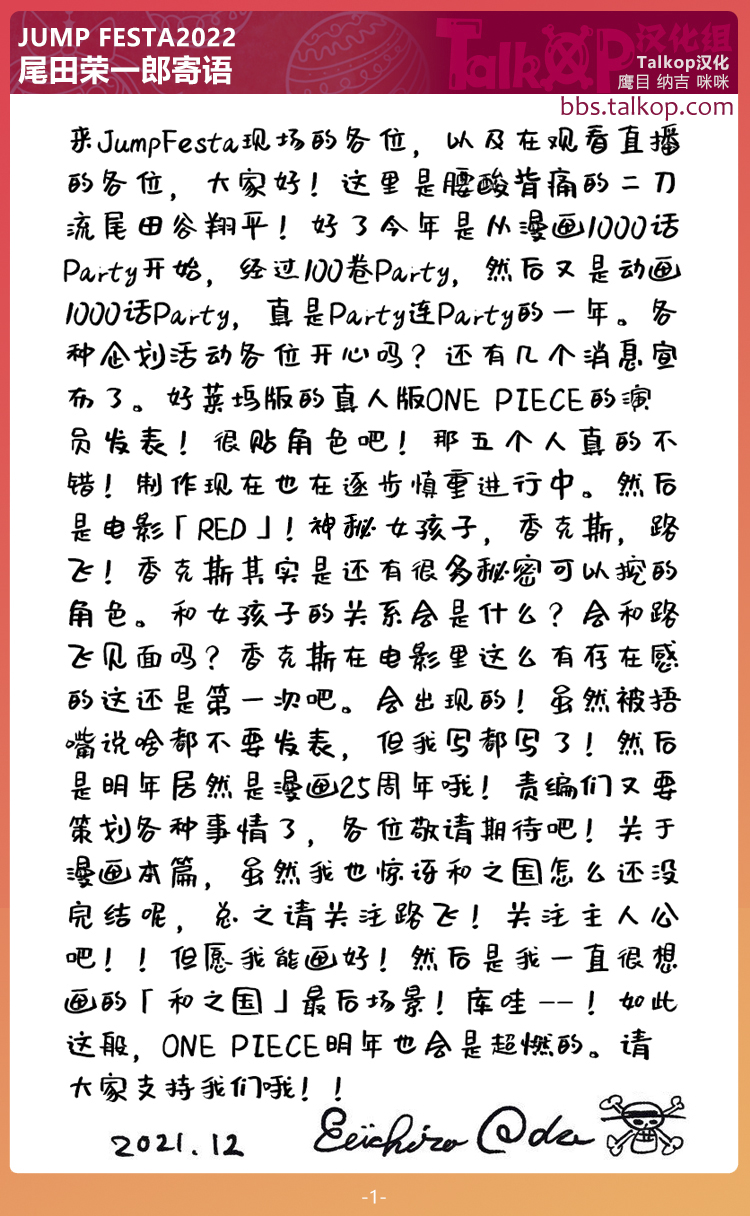 JUMP FESTA2022
尾田荣一郎寄语
TalkOP汉化组
Talkop汉化
鹰目 纳吉 咪咪
bbs.talkop.com
来JumpFesta现场的各位，以及在观看直播
的各位，大家好！这里是腰酸背痛的二刀
流尾田谷翔平！好了今年是从漫画1000话
Party开始，经过100卷Party，然后又是动画
1000话Party，真是Party连Party的一年。各
种企划活动各位开心吗？还有几个消息宣
布了。好莱坞版的真人版ONE PIECE的演
员发表！很贴角色吧！那五个人真的不
错！制作现在也在逐步慎重进行中。然后
是电影「RED」！神秘女孩子，香克斯，路
飞！香克斯其实是还有很多秘密可以挖的
角色。和女孩子的关系会是什么？会和路
飞见面吗？香克斯在电影里这么有存在感
的这还是第一次吧。会出现的！虽然被捂
嘴说啥都不要发表，但我写都写了！然后
是明年居然是漫画25周年哦！责编们又要
策划各种事情了，各位敬请期待吧！关于
漫画本篇，虽然我也惊讶和之国怎么还没
完结呢，总之请关注路飞！关注主人公
吧！！但愿我能画好！然后是我一直很想
画的「和之国」最后场景！库哇——！如此
这般，ONE PIECE明年也会是超燃的。请
大家支持我们哦！！
2021.12 Eiichiro Oda
-1-